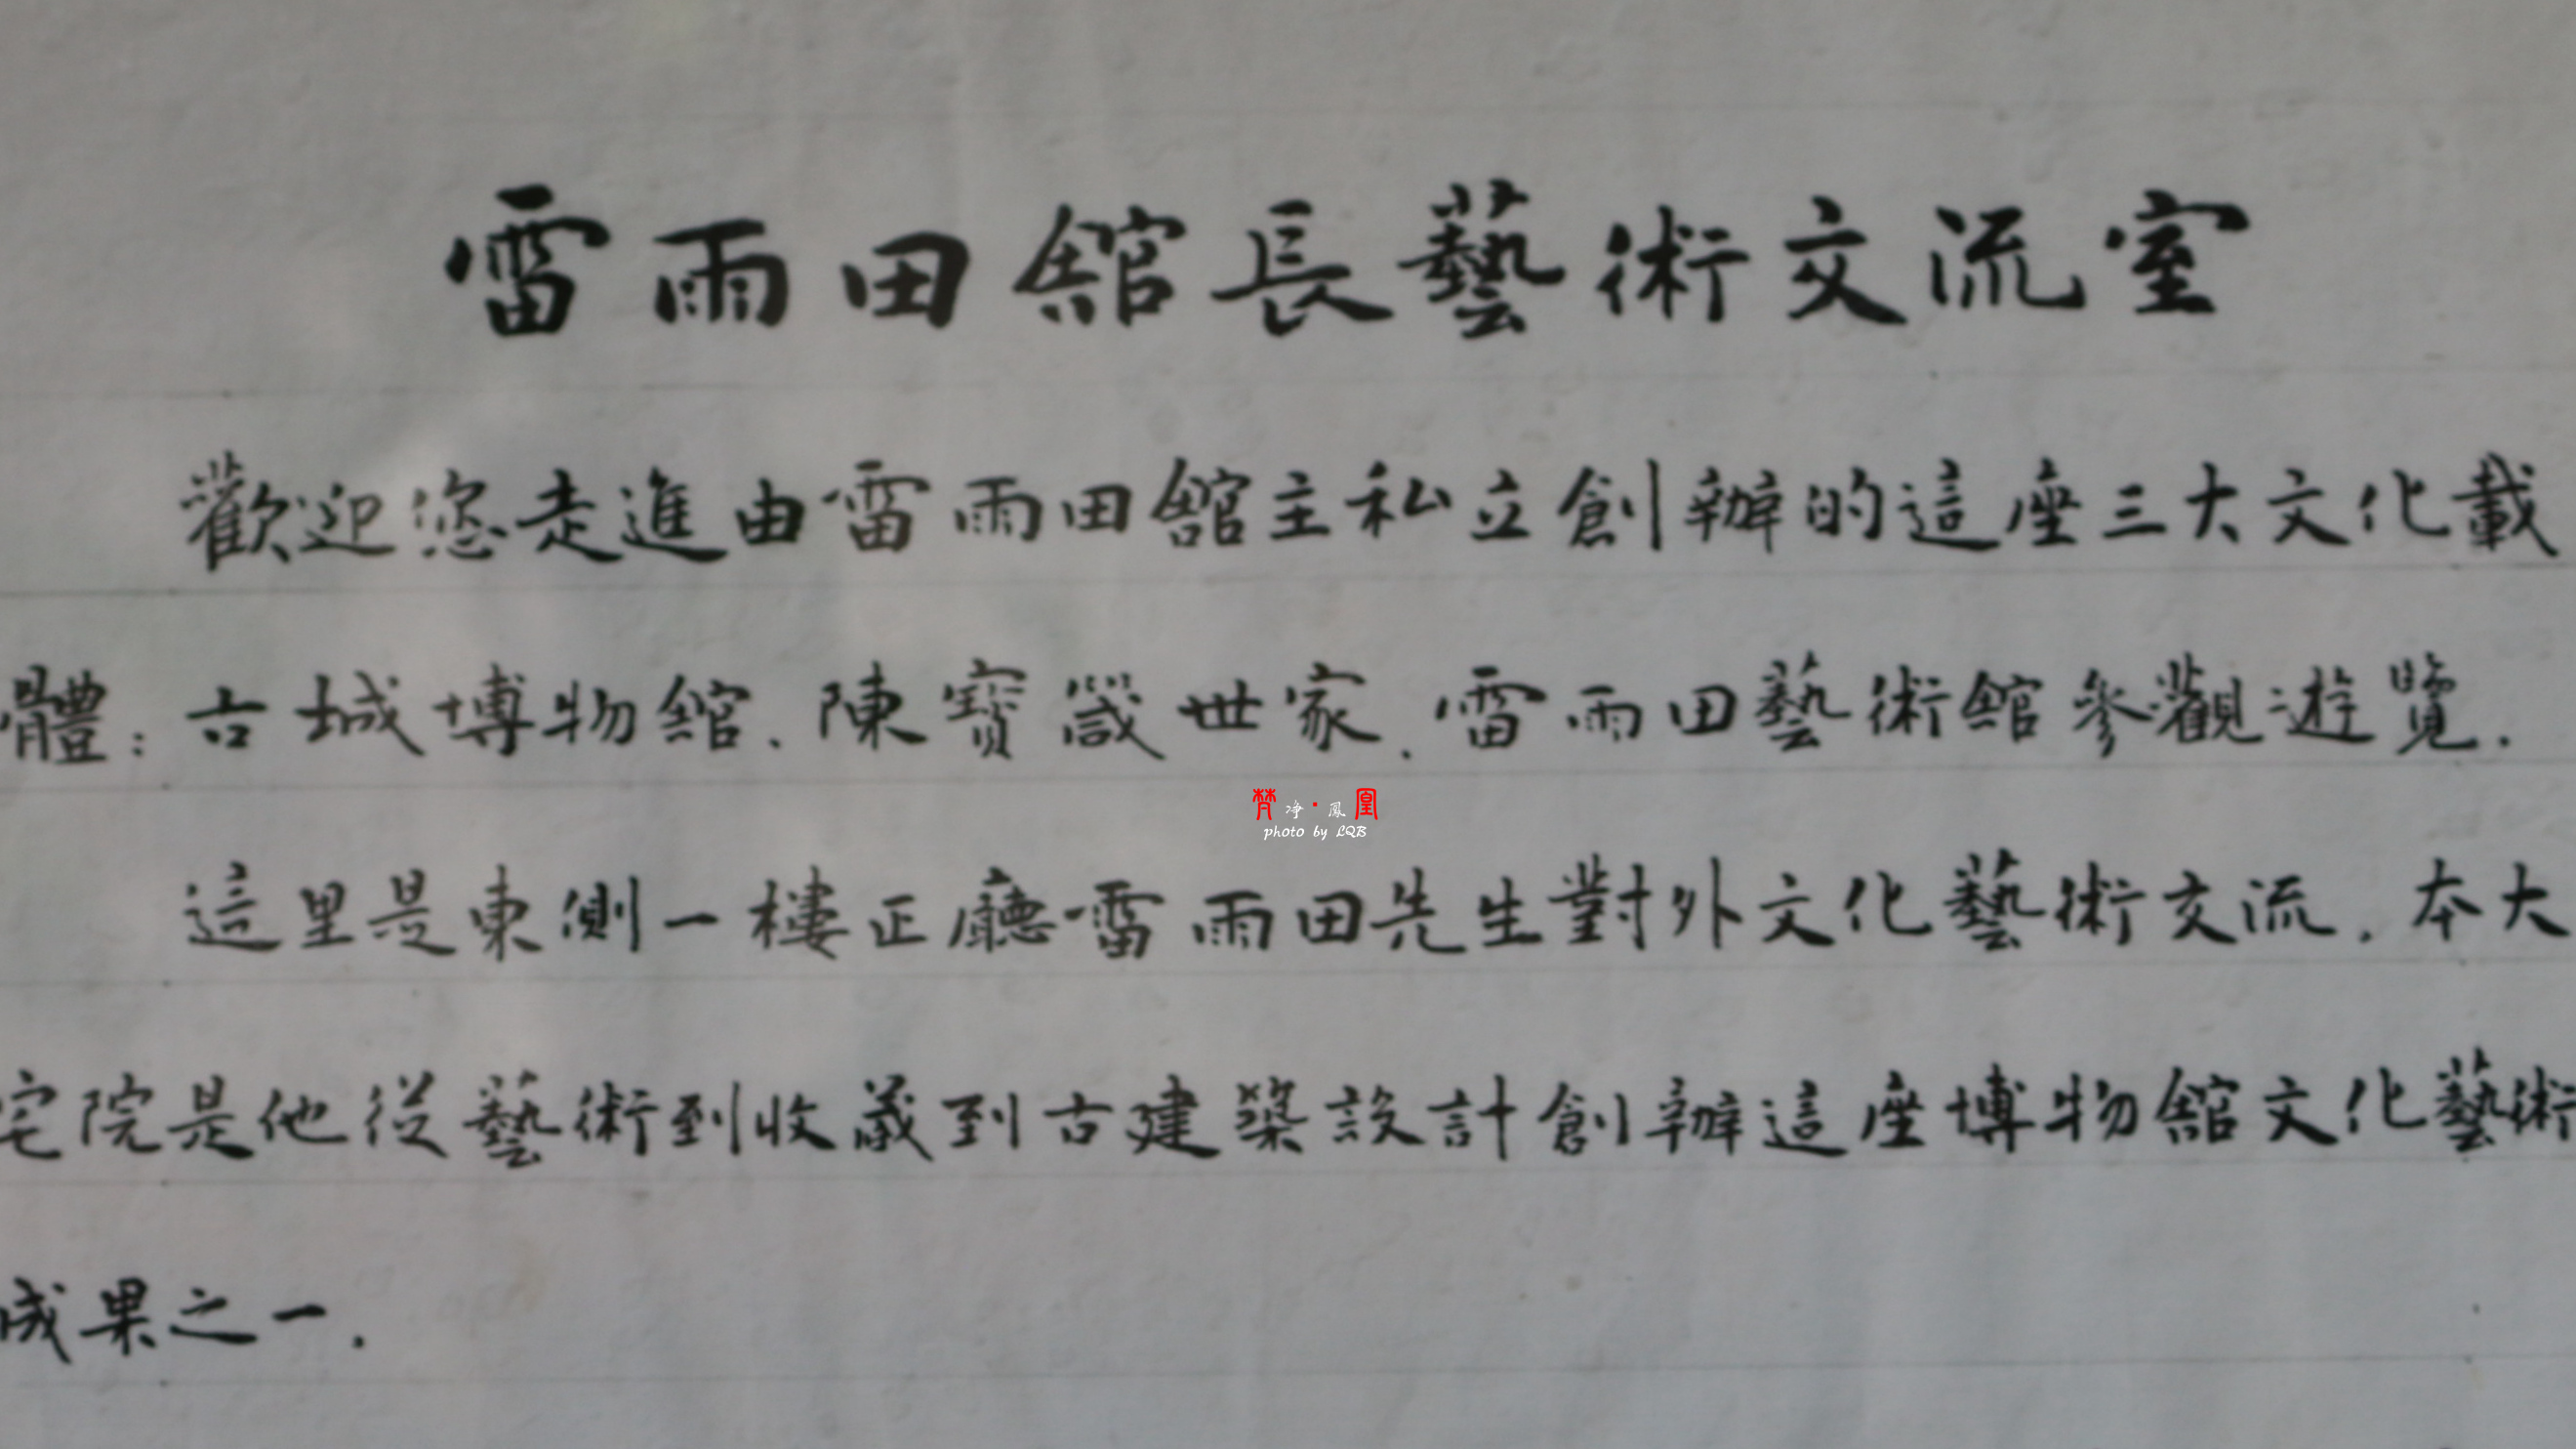 雷雨田舘長藝術交流室
歡迎您走進由雷雨田舘主私立創辦的這座三大文化載
體：古城博物舘、陳寶箴世家、雷雨田藝術舘參觀遊覽.
梵净·鳳凰
photo by LQB
這里是東側一樓正廳雷雨田先生對外文化藝術交流.本大
宅院是他從藝術到收藏到古建築設計創辦這座博物舘文化藝術
成果之一.